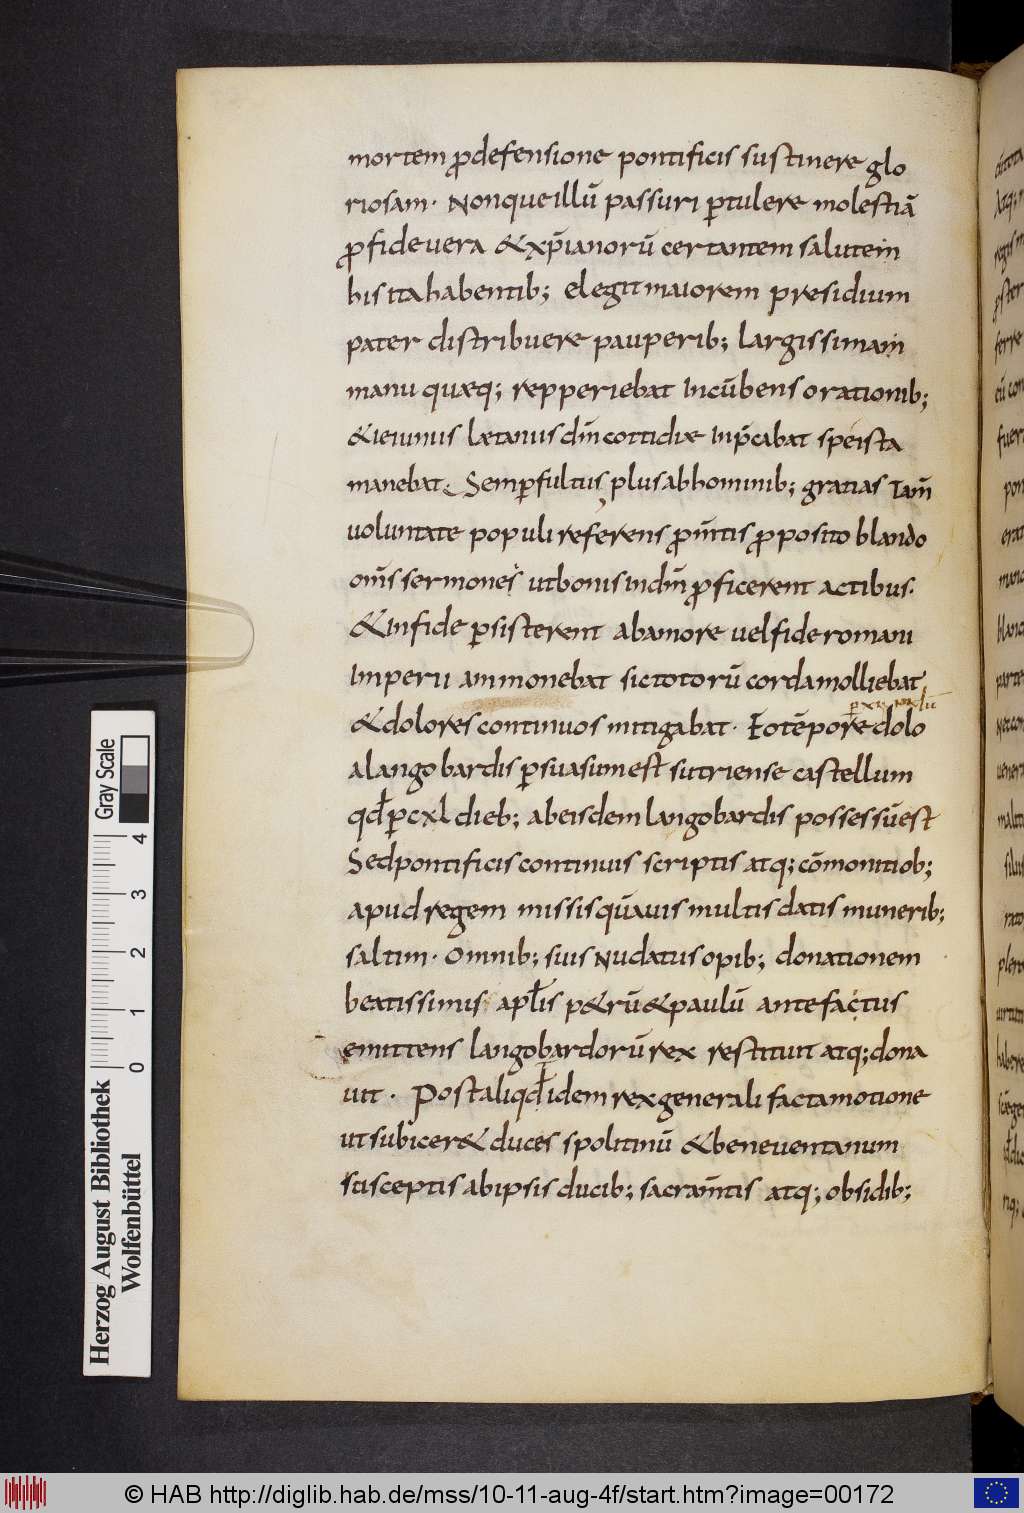 mortem ꝓdefensione pontificis sustinere glo
riosam· Nonqueillū passuri ꝑtulere molestiā
ꝓfidevera &xp̄ianorū certantem salutem
his itahabentib; elegitmaiorem presidium
pater distribuere pauperib; largissimam
manu quæq; repperiebat Incūbens orationib;
&ieiuniis lætaniis dm̄ cottidiæ Inp̄cabat speista
manebat· Semꝑfultus plusabhominib; gratias Tam̄
uoluntate populi referens ꝓm̄tis ꝓposito blando
om̄s sermones utbonis indm̄ ꝓficerent actibus·
&Infide ꝑsisterent abamore uelfide romani
Imperii ammonebat sictotorū cordamolliebat
&dolores continuos mitigabat· Eotēpore dolo
alangobardis ꝑsuasumest sutriense castellum
qd̄ ꝑcxl dieb; abeisdem langobardis possessūest
Sedpontificis continuis scriptis atq; cōmonitiob;
apud regem missis quāuis multis datis munerib;
saltim· Omnib; suis Nudatus opib; donationem
beatissimis apl̄is p&rū&paulū antefactus
emittens langobardorū rex restituit atq; dona
uit· Postaliqd̄ idem rex generali factamotione
utsubicer& duces spolitinū &beneventanum
susceptis abipsis ducib; sacram̄tis atq; obsidib;
Herzog August Bibliothek
Wolfenbüttel
Gray Scale
0 1 2 3 4
© HAB http://diglib.hab.de/mss/10-11-aug-4f/start.htm?image=00172